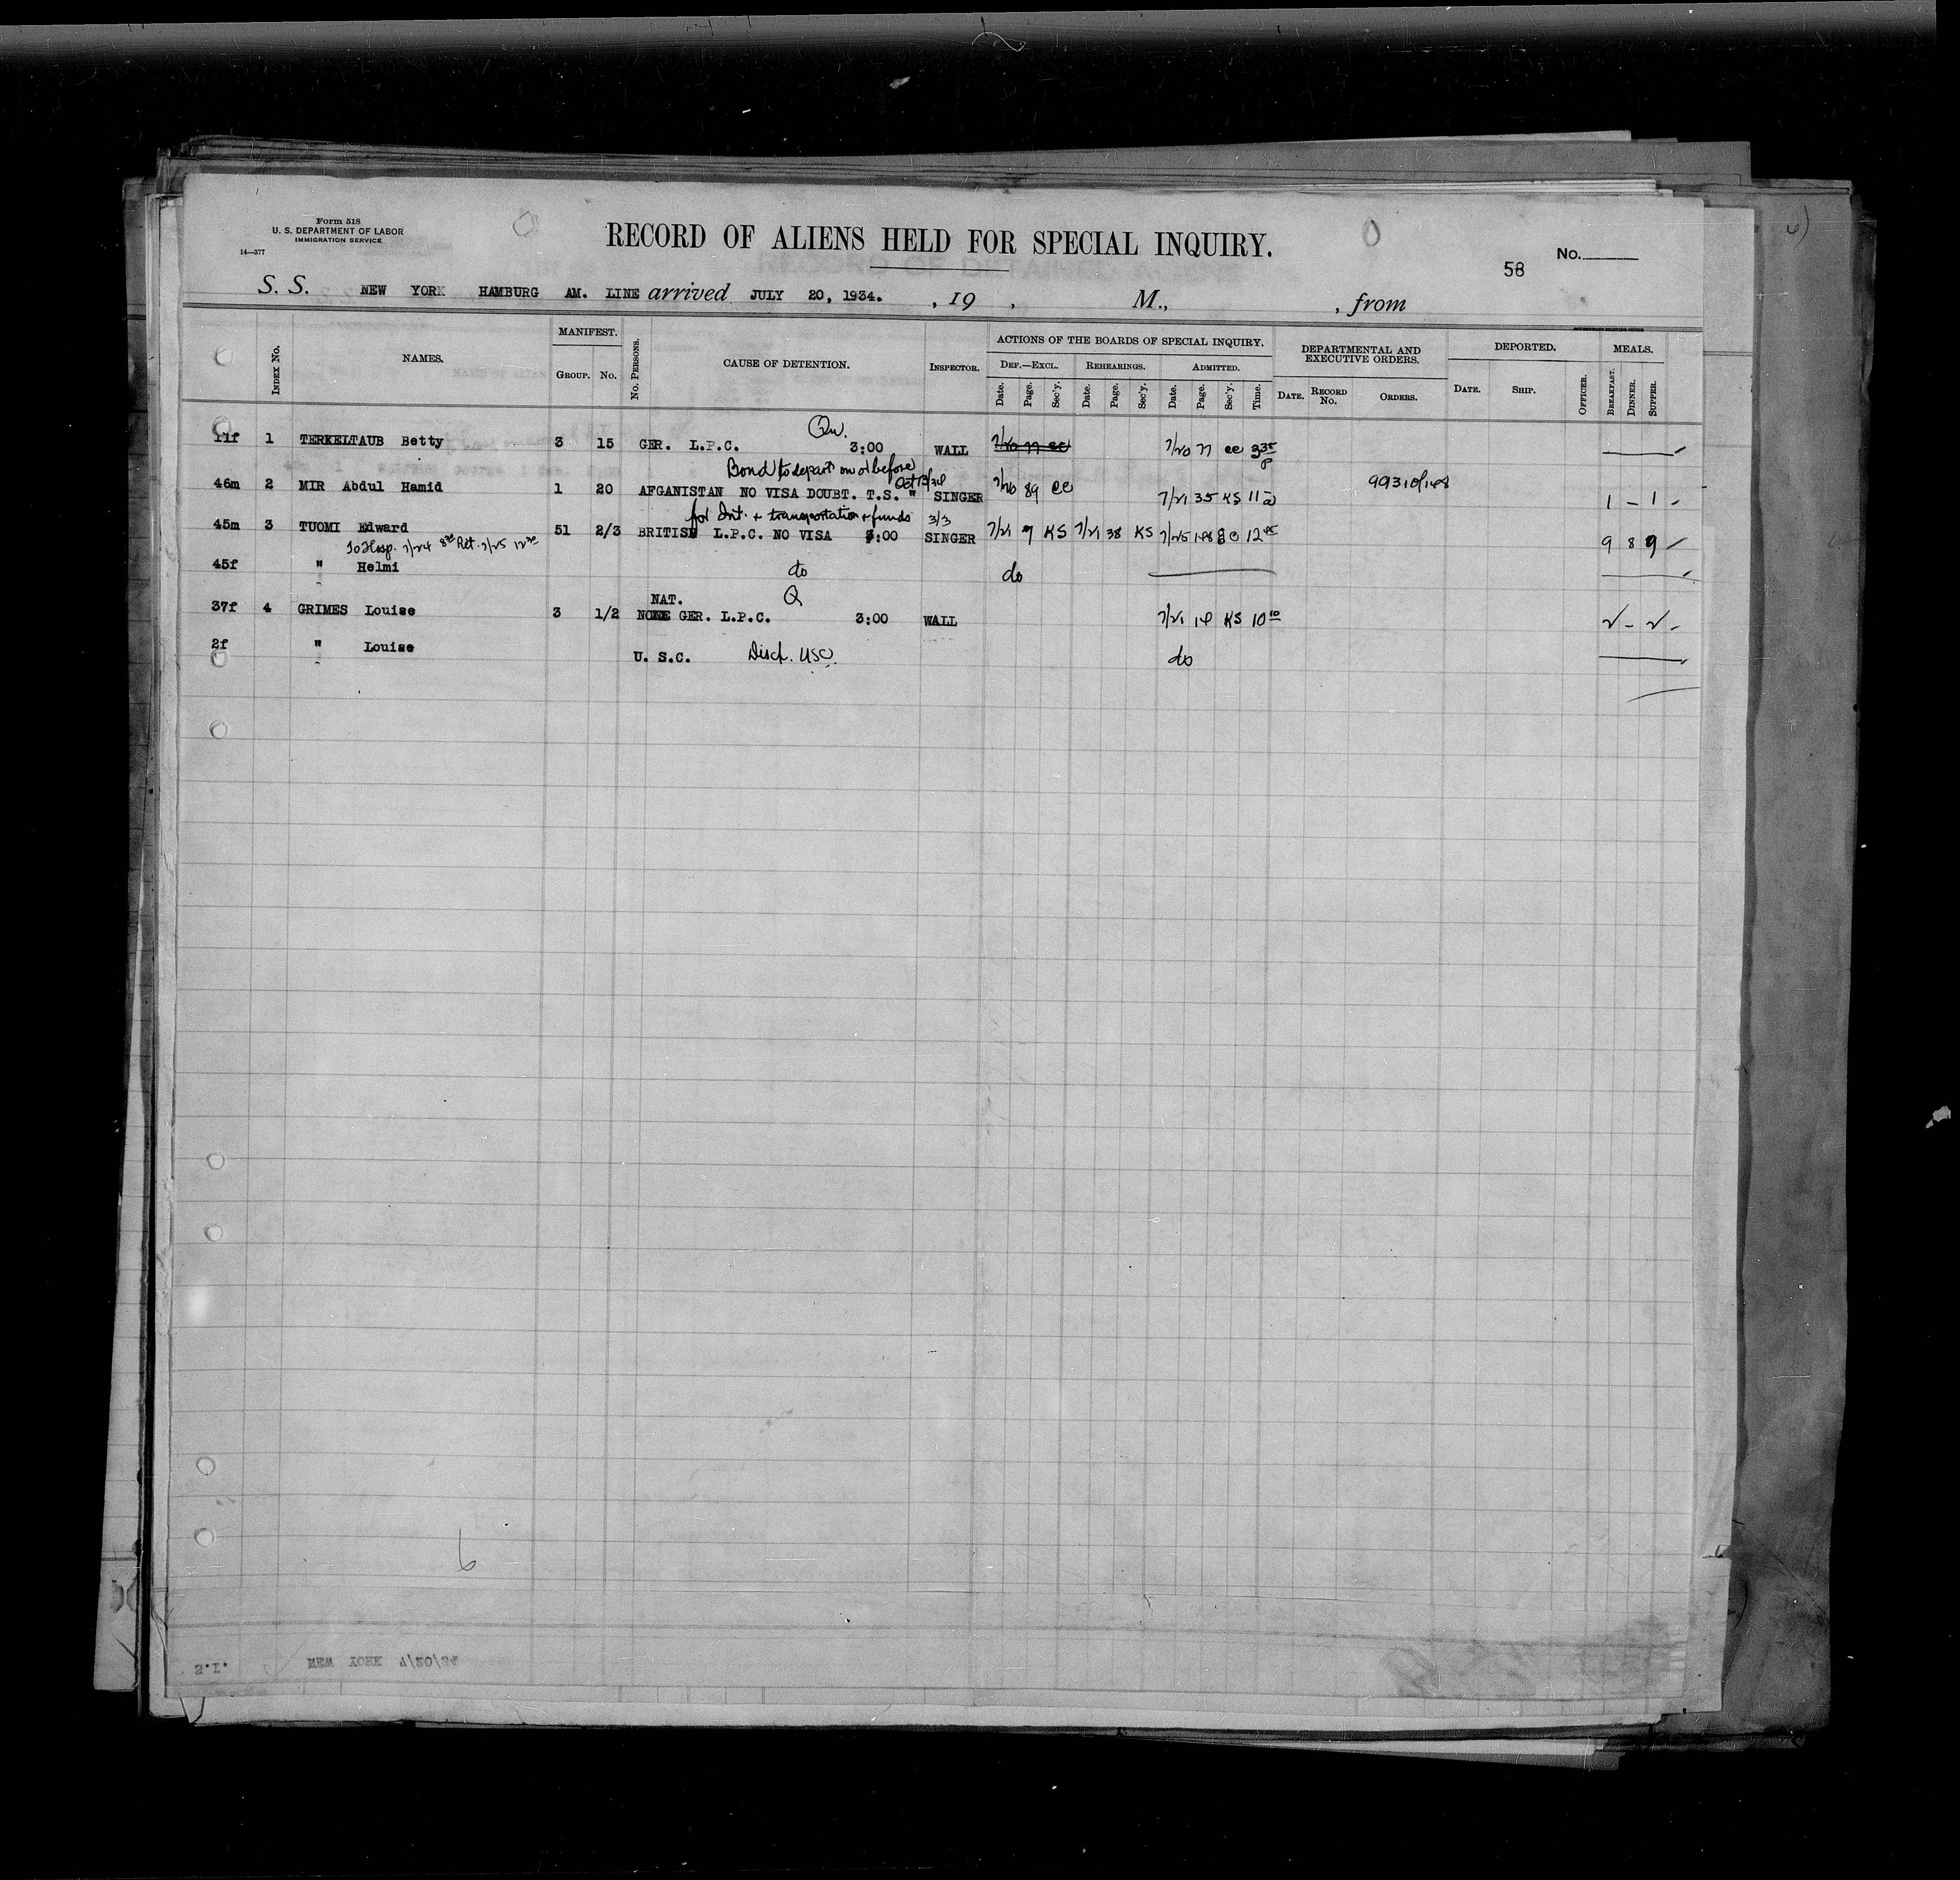 Form 518
U. S. DEPARTMENT OF LABOR
IMMIGRATION SERVICE
14—377
RECORD OF ALIENS HELD FOR SPECIAL INQUIRY.
58 No.
S. S. NEW YORK HAMBURG AM. LINE arrived JULY 20, 1934. , 19 , M., , from
INDEX No. NAMES. MANIFEST. GROUP. No. No. PERSONS. CAUSE OF DETENTION. INSPECTOR. ACTIONS OF THE BOARDS OF SPECIAL INQUIRY. DEF.—EXCL. Date. Page. Sec'y. REHEARINGS. Date. Page. Sec'y. ADMITTED. Date. Page. Sec'y. Time. DEPARTMENTAL AND EXECUTIVE ORDERS. DATE. RECORD No. ORDERS. DEPORTED. DATE. SHIP. OFFICER. MEALS. BREAKFAST. DINNER. SUPPER.
Qu.
11f 1 TERKELTAUB Betty 3 15 GER. L.P.C. 3:00 WALL 7/20 77 ee 7/20 77 ee 3 35 P
Bond to depart on or before
46m 2 MIR Abdul Hamid 1 20 AFGANISTAN NO VISA DOUBT. T.S. " SINGER 7/20 89 ee 7/21 35 KS 11 99310/148 1 – 1
for Int. + transportation + funds 3/3
45m 3 TUOMI Edward 51 2/3 BRITISH L.P.C. NO VISA 3:00 SINGER 7/21 9 KS 7/21 38 KS 7/25 12 9 8 9
To Hosp. 7/24 Ret. 7/25 12
45f " Helmi do do
NAT. Q
37f 4 GRIMES Louise 3 1/2 NONE GER. L.P.C. 3:00 WALL 7/21 14 KS 10 10
2f " Louise U. S.C. Disch. USC. do
6
S.I. NEW YORK 7/20/34